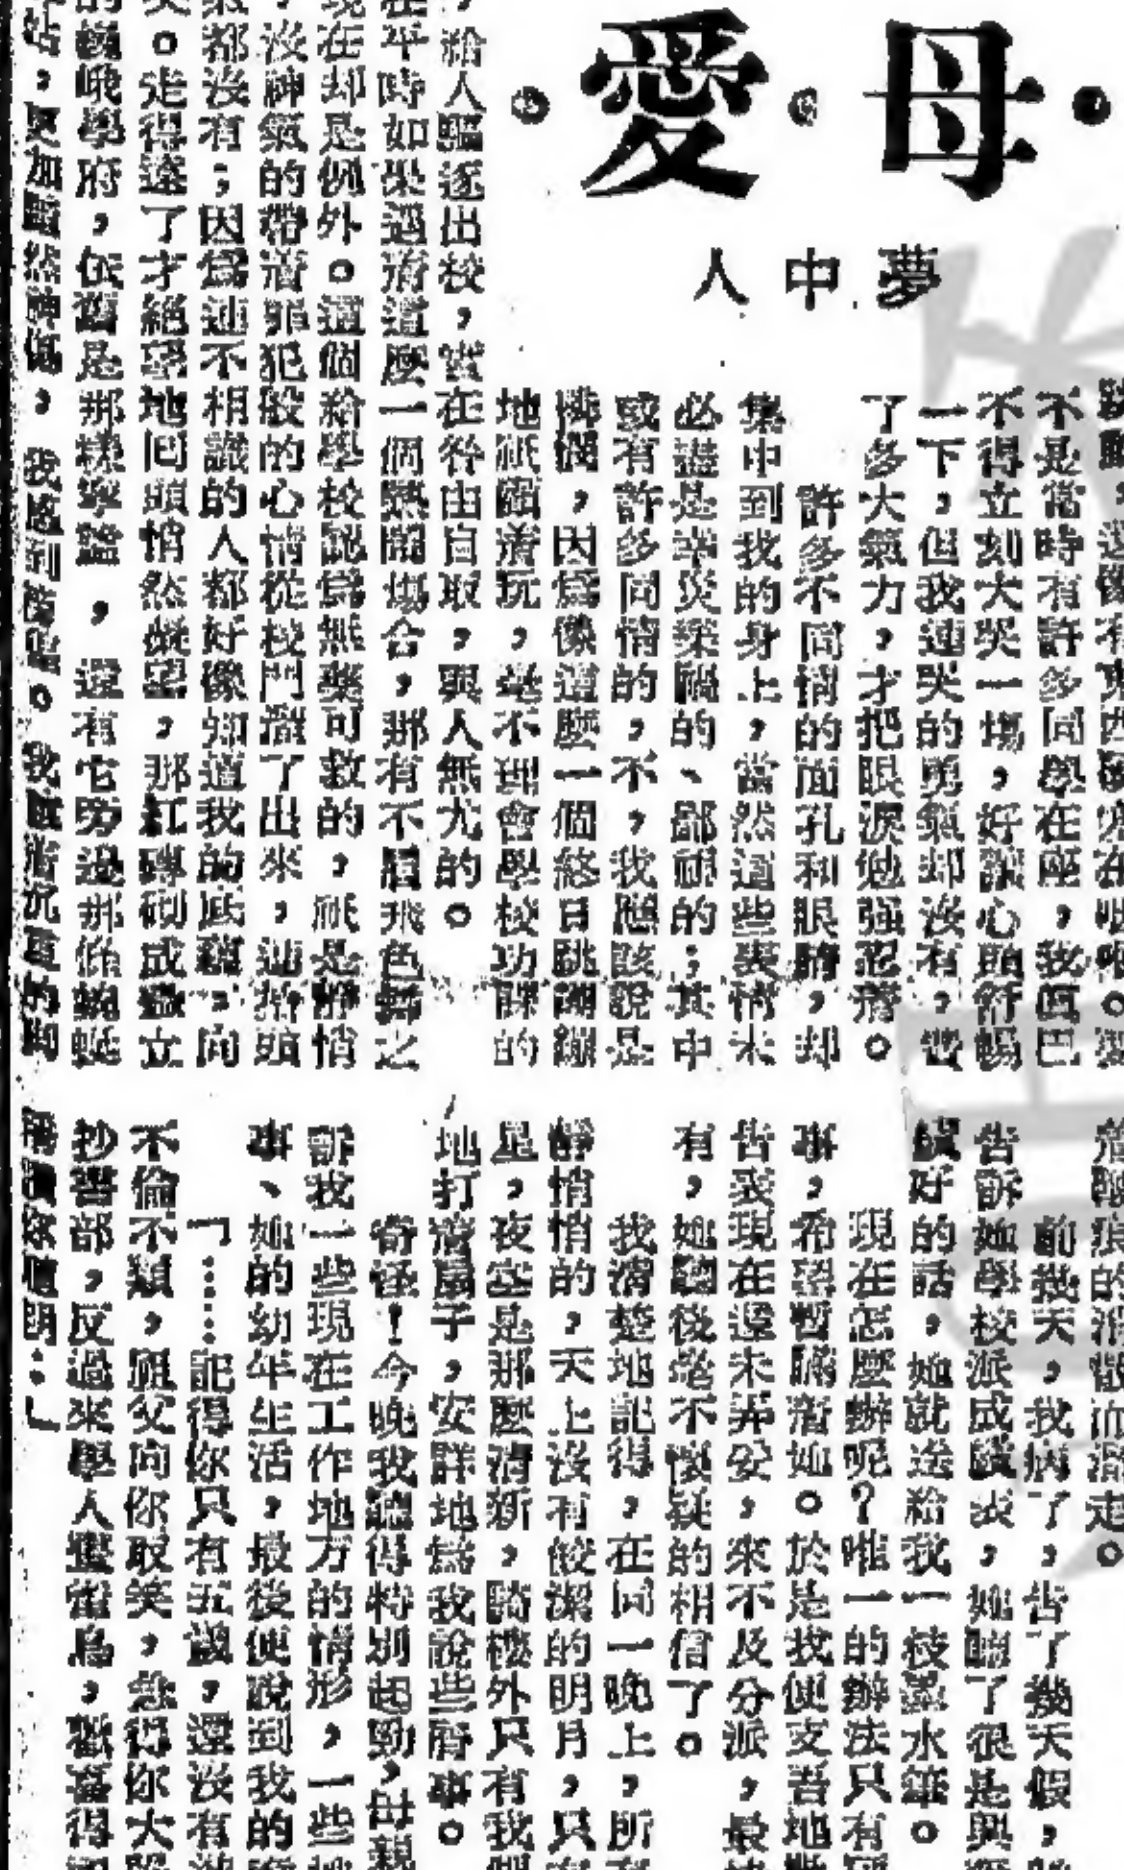 母愛
夢中人
不是當時有許多同學在座，我直巴
不得立刻大哭一場，好讓心頭舒暢
一下，但我連哭的勇氣却沒有，費
了多大氣力，才把眼淚勉强忍着。
許多不同情的面孔和眼睛，却
集中到我的身上，當然這些表情未
必盡是幸災樂禍的、鄙視的；其中
或有許多同情的，不，我應該說是
憐憫，因爲像這麼一個終日跳跳蹦
地祇顧着玩，毫不理會學校功課的
，給人驅逐出校，實在咎由自取，與人無尤的。
在平時如果遇着這麼一個熱鬧場合，那有不眉飛色舞之
現在却是例外。這個給學校認爲無藥可救的，祇是靜悄
，沒神氣的帶着罪犯般的心情從校門溜了出來，連抬頭
氣都沒有；因爲連不相識的人都好像知道我的底蘊，向
笑。走得遠了才絕望地回頭悄然凝望，那紅磚砌成矗立
的巍峨學府，依舊是那樣寧謐，還有它旁邊那條蜿蜒
，更加黯然神傷，我感到徬徨。我
着酸痕的消散而溜走。
前幾天，我病了，告了幾天假，
告訴她學校派成績表，她聽了很是興
績好的話，她就送給我一枝墨水筆。
現在怎麼辦呢？唯一的辦法只有
事，希望暫瞞着她。於是我便支吾地
告表現在還未弄妥，來不及分派，最
有，她聽後毫不懷疑的相信了。
我淸楚地記得，在同一晚上，所
靜悄悄的，天上沒有皎潔的明月，只
星，夜空是那麼淸新，騎樓外只有我
地打着扇子，安詳地爲我說些舊事。
奇怪！今晚我聽得特別起勁，母親
訴我一些現在工作地方的情形，一些
事、她的幼年生活，最後便說到我的
「……記得你只有五歲，還沒有
不倫不類，祖父向你取笑，急得你大
抄書部，反過來學人鑿當鳥，歡喜得
聰明…」